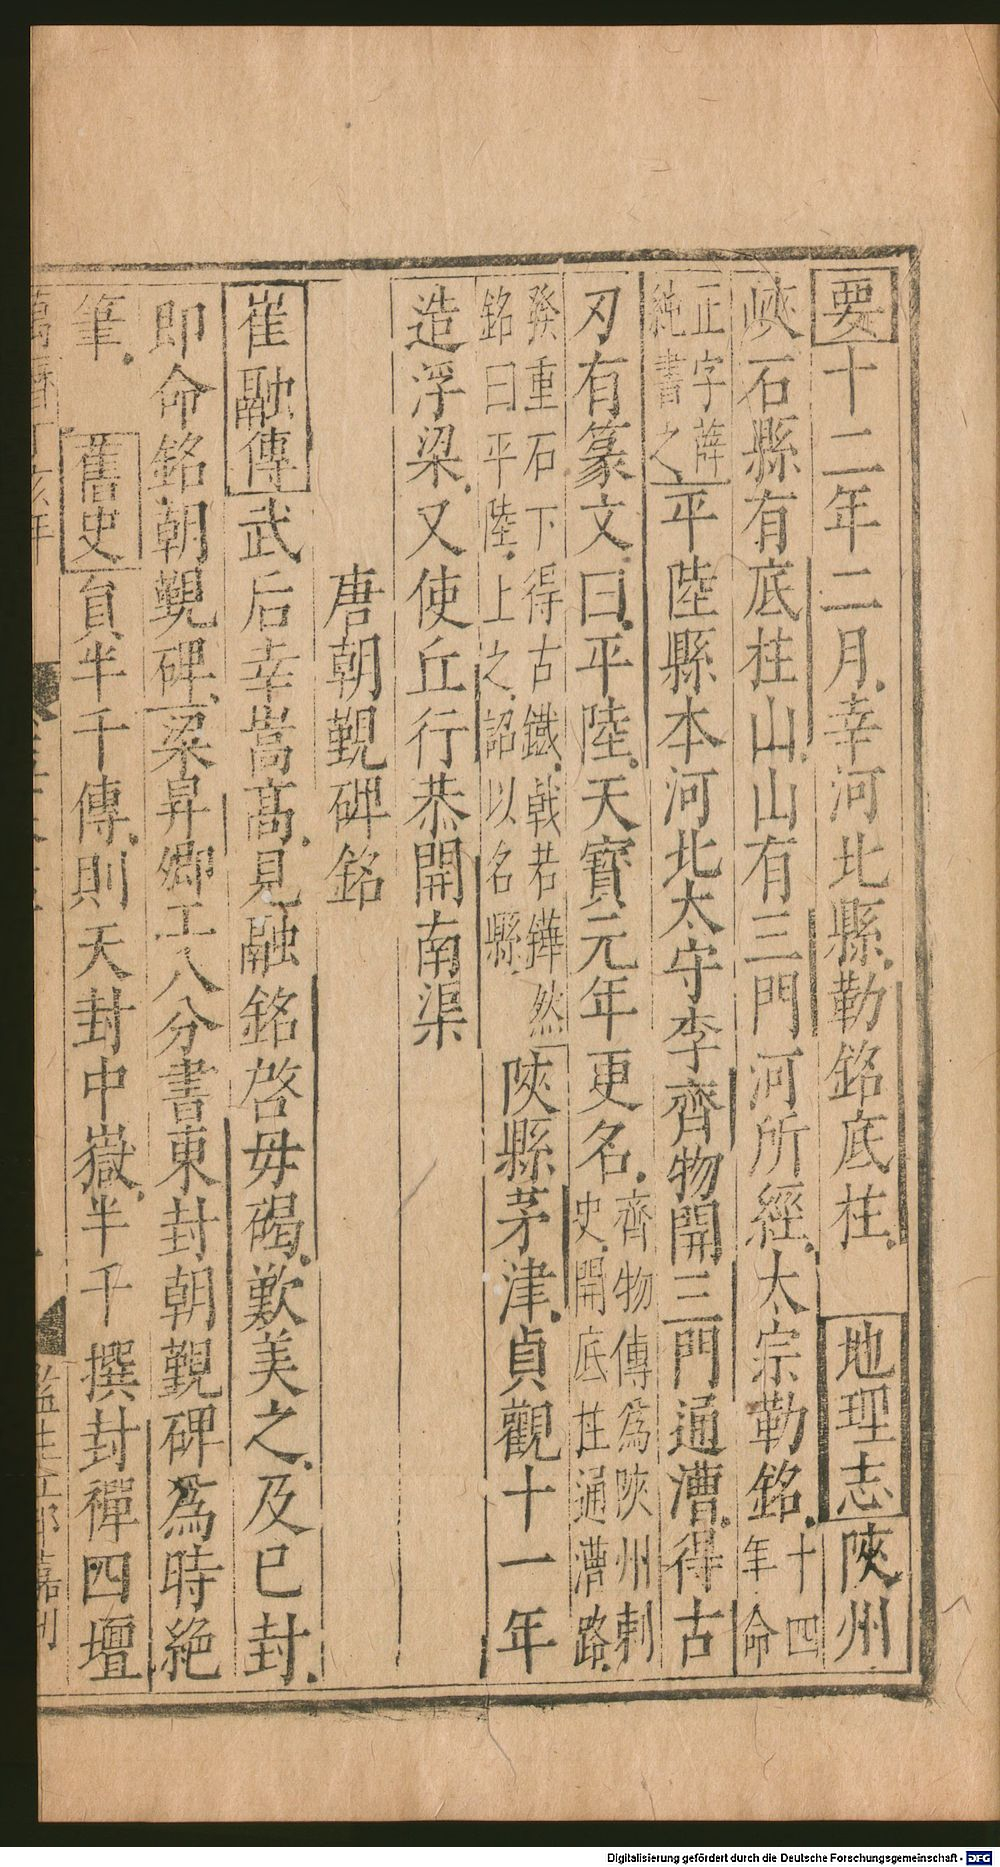 要十二年二月幸河北縣勒銘底柱　地理志陜州
峽石縣有底柱山山有三門河所經太宗勒銘十四年命
正字薛純書之平陸縣本河北太守李齊物開三門通漕得古
刃有篆文曰平陸天寶元年更名齊物傳為陜州刺史開底柱通漕路
發重石下得古鐵戟若鏵然銘曰平陸上之詔以名縣　陜縣茅津貞觀十一年
造浮梁又使丘行恭開南渠
唐朝覲碑銘
崔融傳武后幸嵩高見融銘啓母碣歎美之及已封
即命銘朝覲碑梁昇卿工八分書東封朝覲碑為時絕
筆　舊史員半千傳則天封中嶽半千撰封禪四壇
萬曆丁亥年
Digitalisierung gefördert durch die Deutsche Forschungsgemeinschaft - DFG